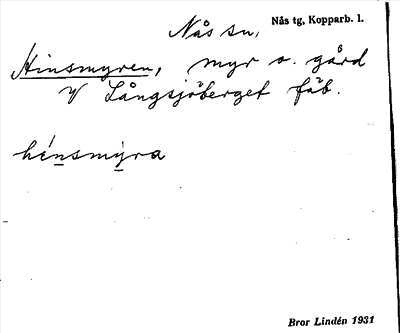 Nås sn, Nås tg, Kopparb. l.
Hinsmyren, myr o. gård
V Långsjöberget fäb.
hinsmýra
Bror Lindén 1931